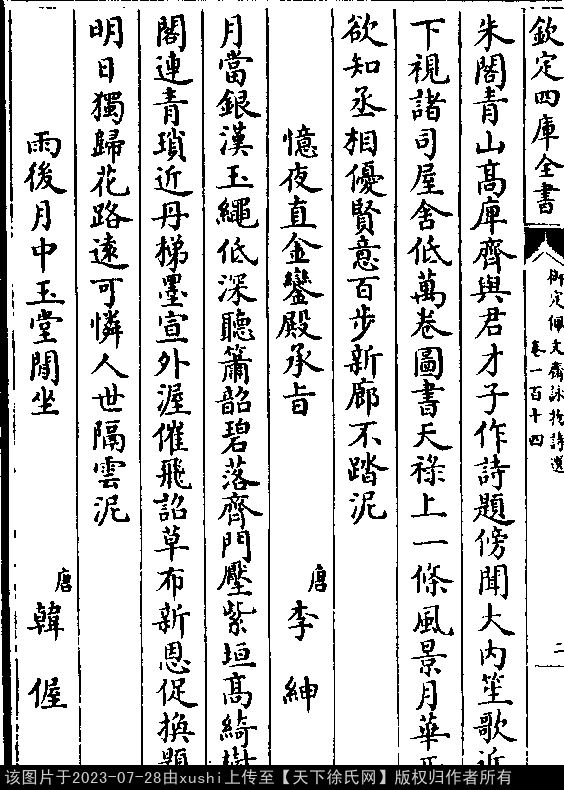 欽定四庫全書
御定佩文齋詠物詩選
卷一百十四
二
朱閣青山高庫齊與君才子作詩題傍聞大內笙歌近
下視諸司屋舍低萬卷圖書天祿上一條風景月華西
欲知丞相優賢意百步新廊不踏泥
憶夜直金鑾殿承旨
唐
李紳
月當銀漢玉繩低深聽簫韶碧落齊門壓紫垣高綺樹
閣連青瑣近丹梯墨宣外渥催飛詔草布新恩促換題
明日獨歸花路遠可憐人世隔雲泥
雨後月中玉堂閒坐
唐
韓偓
该图片于2023-07-28由xushi上传至【天下徐氏网】版权归作者所有